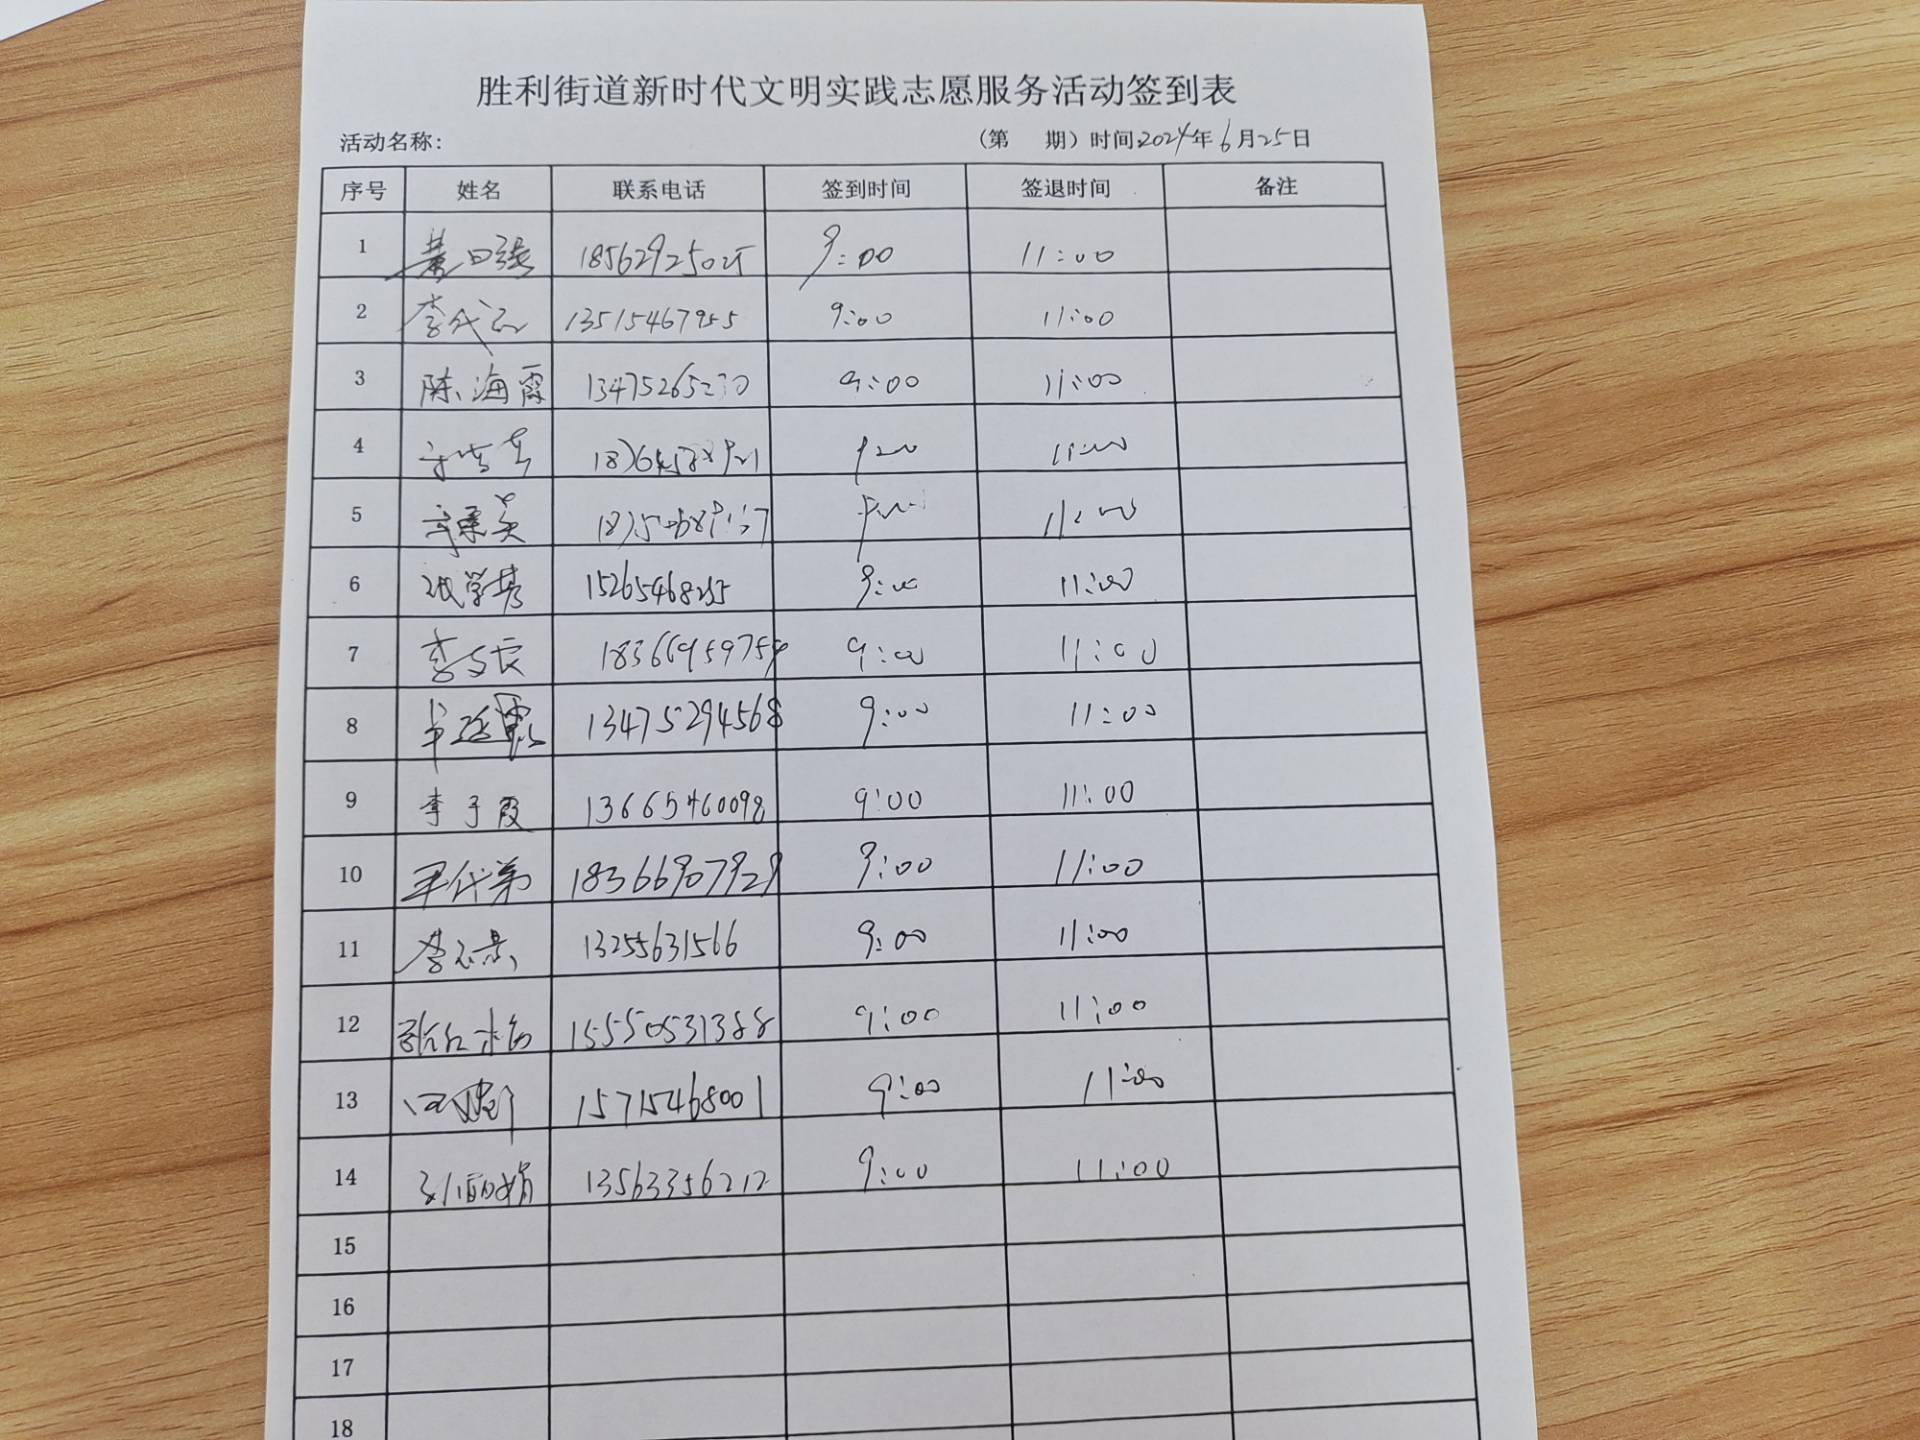 胜利街道新时代文明实践志愿服务活动签到表
活动名称: (第 期) 时间2024年6月25日
序号 姓名 联系电话 签到时间 签退时间 备注
1 18562925025 9:00 11:00
2 13515467955 9:00 11:00
3 陈海霞 9:00 11:00
4 11:00
5 11:00
6 15265468255 9:00 11:00
7 9:00 11:00
8 13475294568 9:00 11:00
9 李于霞 13665460098 9:00 11:00
10 18366907929 9:00 11:00
11 13255631566 9:00 11:00
12 15550531388 9:00 11:00
13 15715468001 9:00 11:00
14 刘丽娟 13563356212 9:00 11:00
15
16
17
18